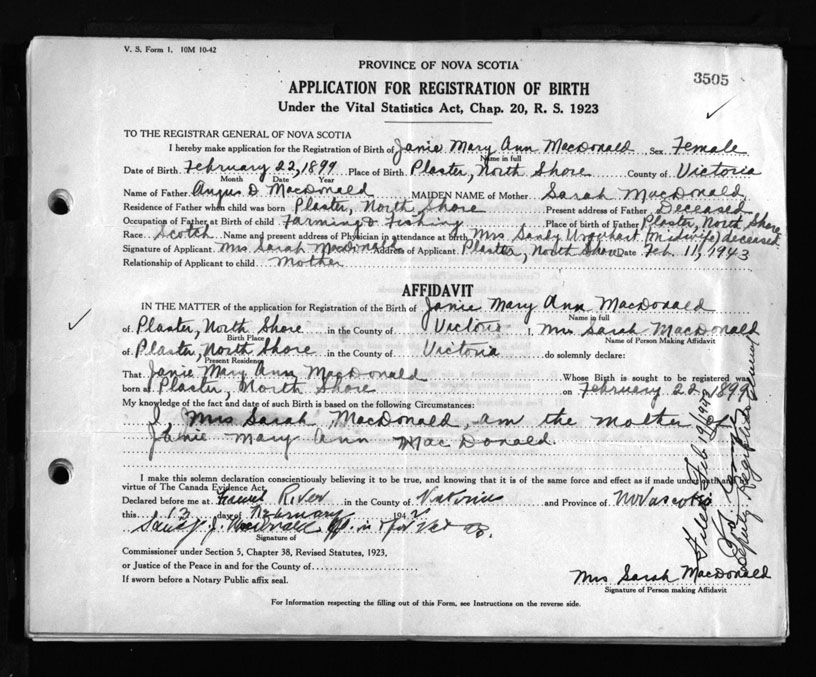 V. S. Form 1. 10M 10-42
PROVINCE OF NOVA SCOTIA
3505
APPLICATION FOR REGISTRATION OF BIRTH
Under the Vital Statistics Act, Chap. 20, R. S. 1923
TO THE REGISTRAR GENERAL OF NOVA SCOTIA
I hereby make application for the Registration of Birth of Janie Mary Ann MacDonald Sex Female
Name in full
Date of Birth February 22, 1899 Place of Birth Plaster, North Shore County of Victoria
Month Date Year
Name of Father Angus D. MacDonald MAIDEN NAME of Mother Sarah MacDonald
Residence of Father when child was born Plaster, North Shore Present address of Father Deceased
Occupation of Father at Birth of child Farming & Fishing Place of birth of Father Plaster, North Shore
Race Scotch Name and present address of Physician in attendance at birth Mrs Sandy Urquhart (Midwife) deceased
Signature of Applicant Mrs Sarah MacDonald Address of Applicant Plaster, North Shore Date Feb. 11, 1943
Relationship of Applicant to child Mother
AFFIDAVIT
IN THE MATTER of the application for Registration of the Birth of Janie Mary Ann MacDonald
Name in full
of Plaster, North Shore in the County of Victoria I, Mrs Sarah MacDonald
Birth Place Name of Person Making Affidavit
of Plaster, North Shore in the County of Victoria do solemnly declare:
Present Residence
That Janie Mary Ann MacDonald Whose Birth is sought to be registered was
born at Plaster, North Shore on February 22, 1899
My knowledge of the fact and date of such Birth is based on the following Circumstances:
I, Mrs Sarah MacDonald, am the mother of
Janie Mary Ann MacDonald.
I make this solemn declaration conscientiously believing it to be true, and knowing that it is of the same force and effect as if made under oath
virtue of The Canada Evidence Act.
Declared before me at River in the County of Victoria and Province of Nova Scotia
this 13 day of February 194
Signature of
Commissioner under Section 5, Chapter 38, Revised Statutes, 1923,
or Justice of the Peace in and for the County of
If sworn before a Notary Public affix seal.
Mrs Sarah MacDonald
Signature of Person making Affidavit
For Information respecting the filling out of this Form, see Instructions on the reverse side.
Filed Feb 19/1943
Deputy Registrar General